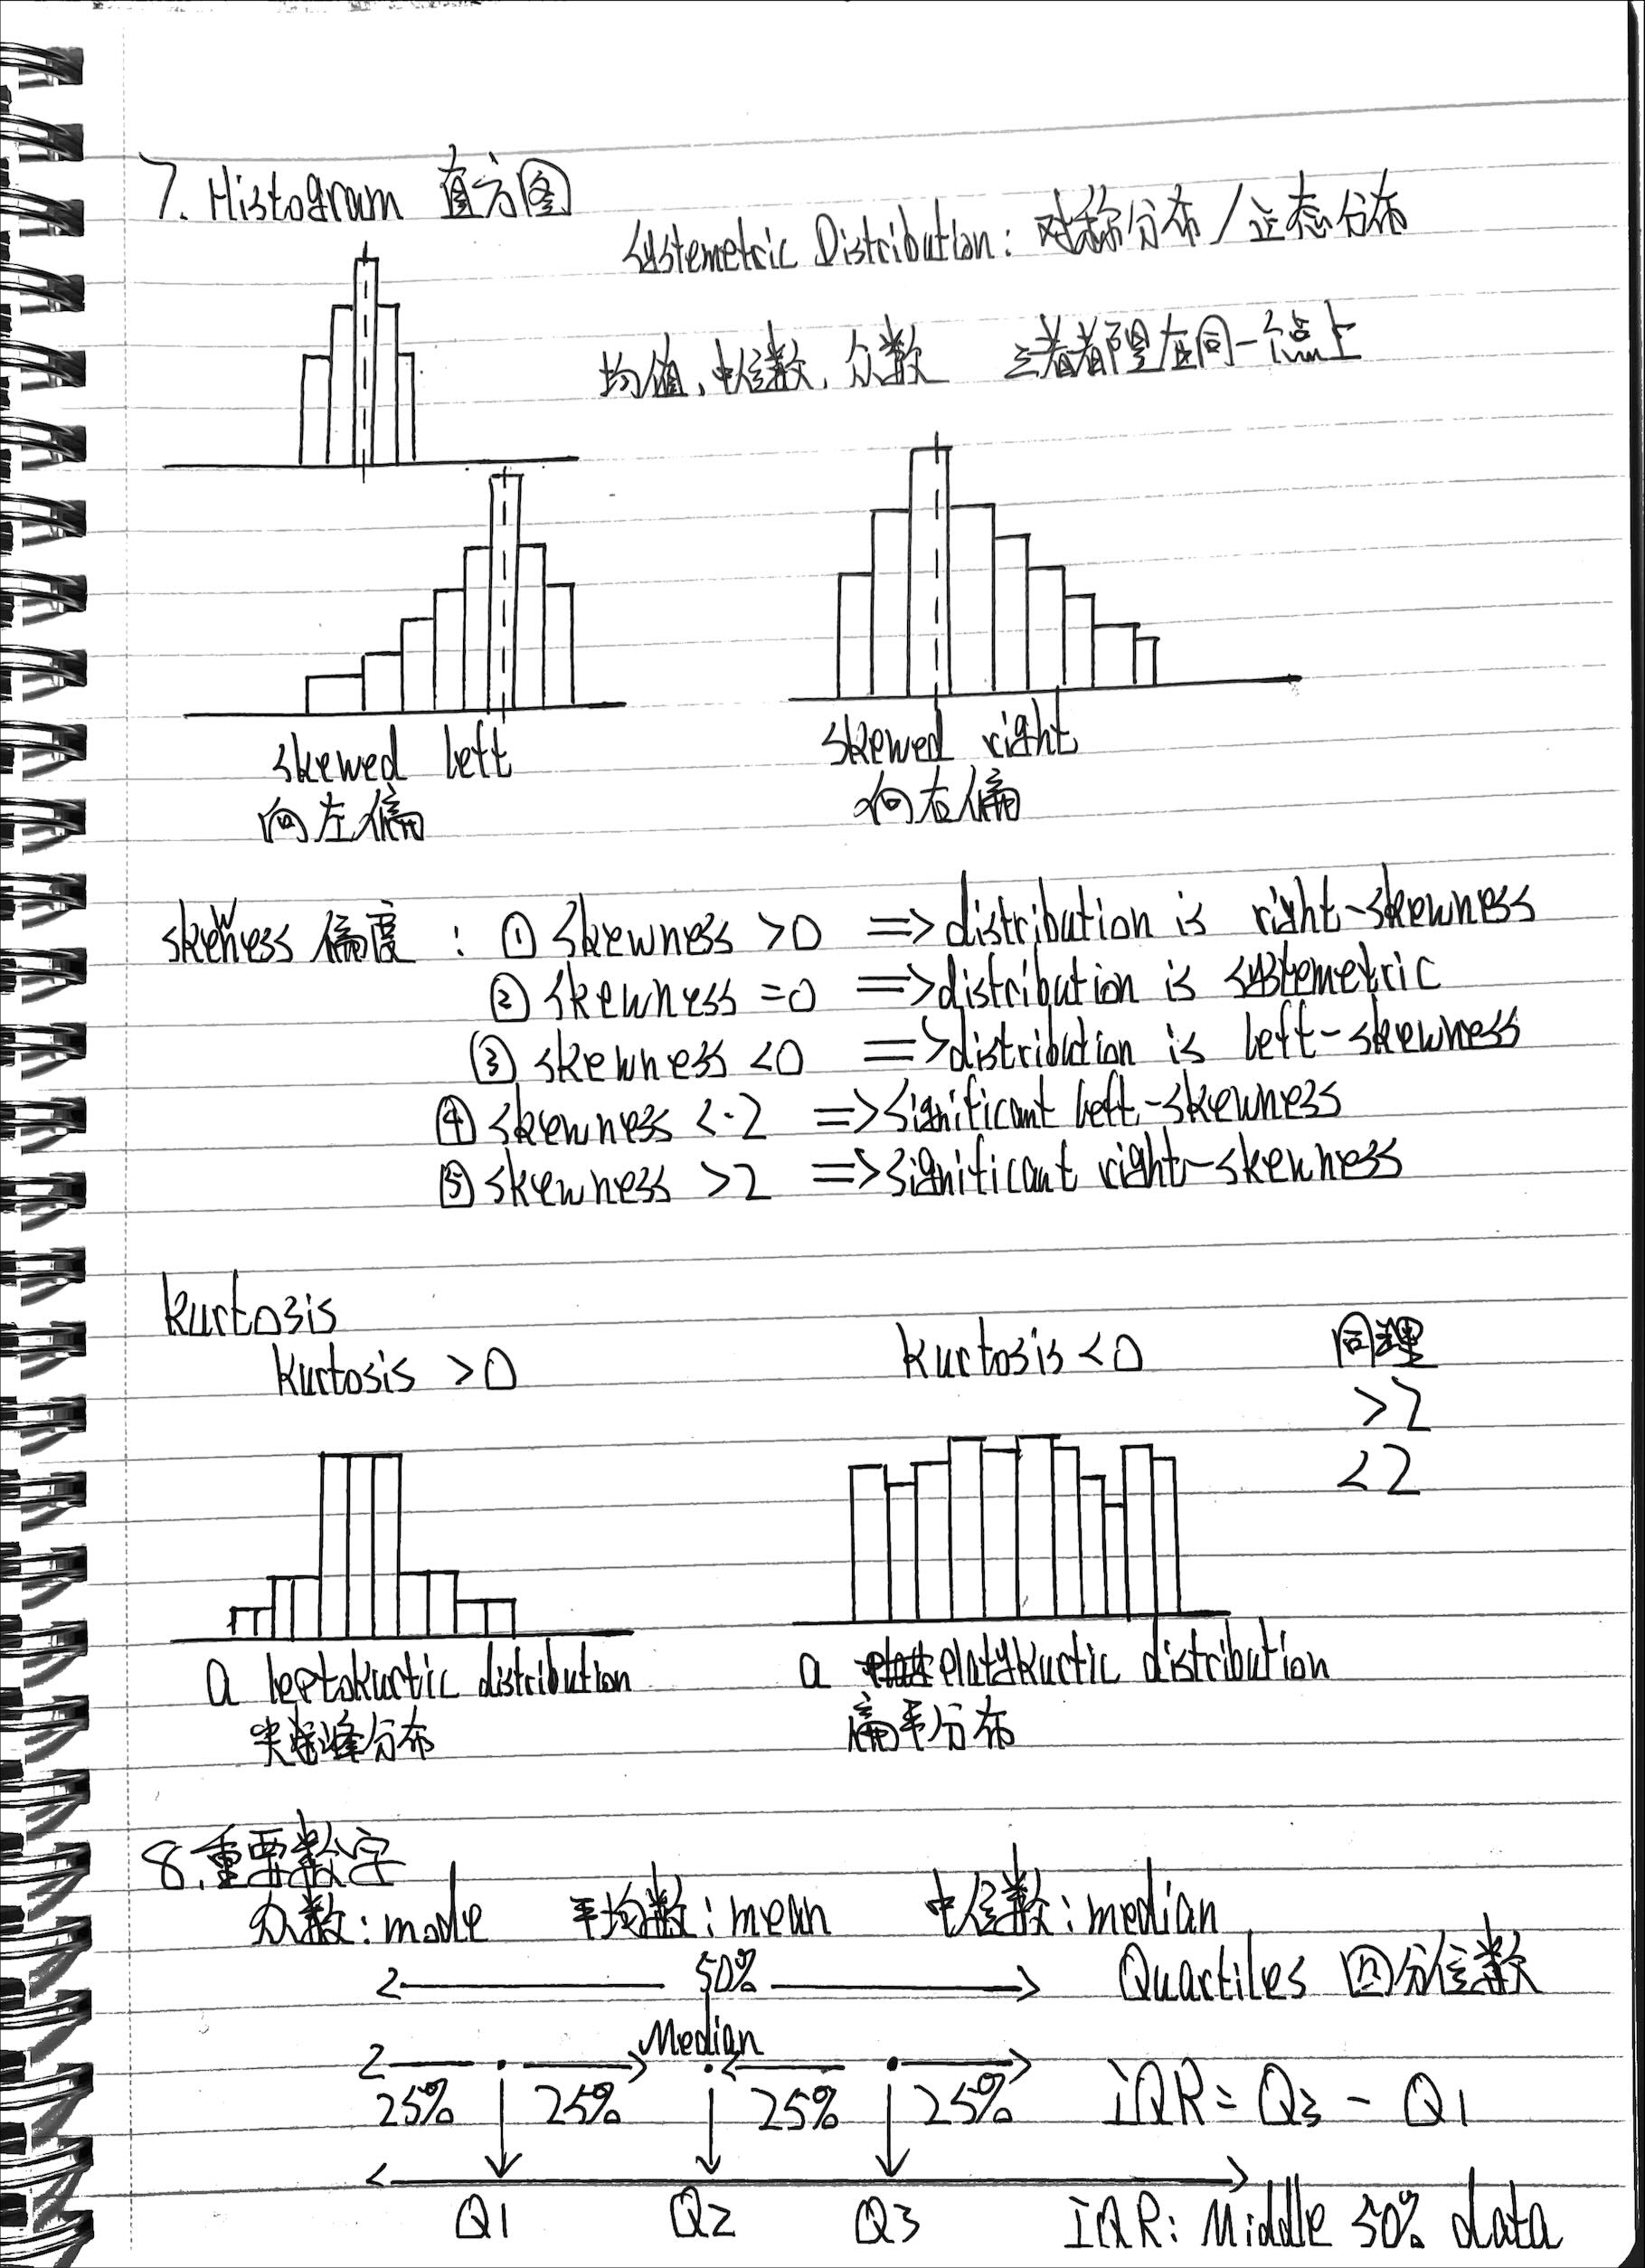 7. Histogram 直方图
Systemetric Distribution: 对称分布/正态分布
均值、中位数、众数 三者都置在同一个点上
skewed left
向左偏
skewed right
向右偏
skewness 偏度: ① skewness >0 => distribution is right-skewness
② skewness =0 => distribution is systemetric
③ skewness <0 => distribution is left-skewness
④ skewness <-2 => significant left-skewness
⑤ skewness >2 => significant right-skewness
kurtosis
kurtosis >0
kurtosis <0
同理
>2
<2
a leptokurtic distribution
尖峰分布
a platykurtic distribution
扁平分布
8.重要数字
众数: mode 平均数: mean 中位数: median
50%
Quartiles 四分位数
Median
25% 25% 25% 25%
IQR = Q3 - Q1
Q1 Q2 Q3
IQR: Middle 50% data